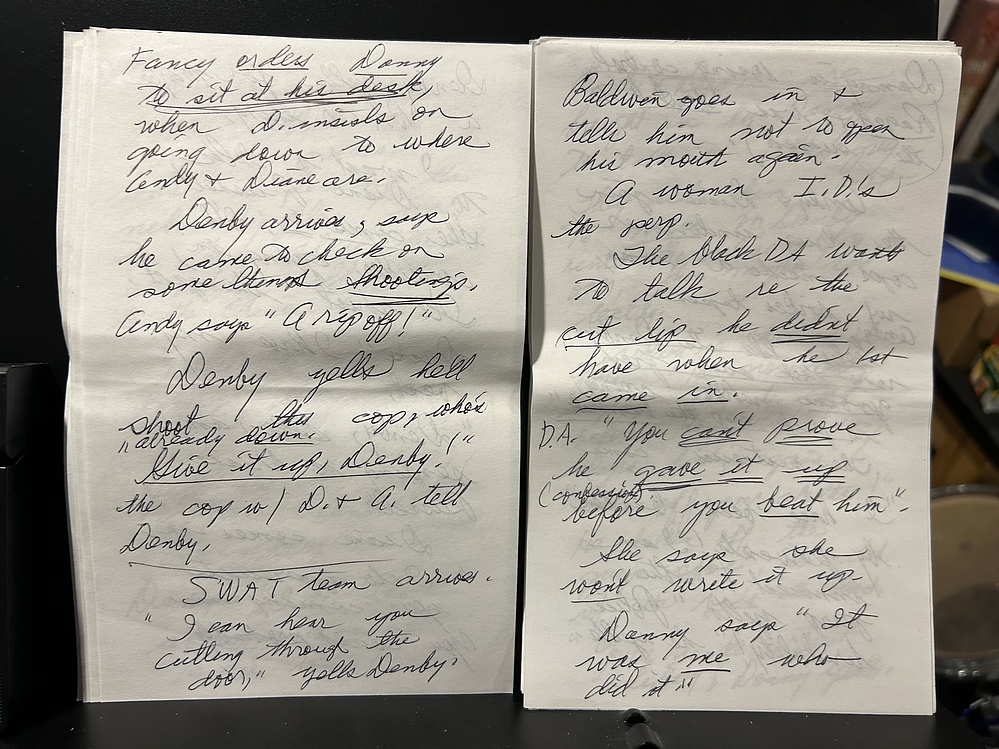 Fancy orders Danny
to sit at his desk,
when D. insists on
going down to where
Andy + Diane are.
Denby arrives, says
he came to check on
some shootings.
Andy says "A ripoff!"
Denby yells he'll
shoot this cop, who's
"already down.
Give it up, Denby!"
the cop w/ D. + A. tell
Denby.
SWAT team arrives.
"I can hear you
cutting through the
door," yells Denby.
Baldwin goes in +
tells him not to open
his mouth again.
A woman I.D.'s
the perp.
The black DA wants
to talk re the
cut lip he didnt
have when he 1st
came in.
D.A. "You can't prove
he gave it up
(confession)
before you beat him".
She says she
wont write it up.
Danny says "It
was me who
did it"